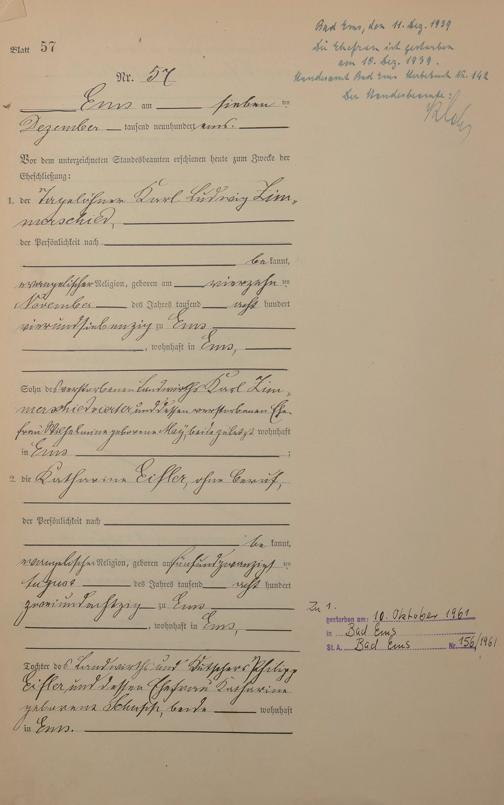 Blatt 57
Bad Ems, den 11. Dez. 1939
Die Ehefrau ist gestorben
am 10. Dez. 1939.
Standesamt Bad Ems Sterbebuch Nr. 142
Der Standesbeamte:
Nr. 57
Ems am sieben ten
Dezember tausend neunhundert eins.
Vor dem unterzeichneten Standesbeamten erschienen heute zum Zwecke der
Eheschließung:
1. der Tagelöhner Karl Ludwig Zim-
merschied,
der Persönlichkeit nach
be kannt,
evangelischer Religion, geboren am vierzehn ten
November des Jahres tausend acht hundert
vierundsiebenzig zu Ems
, wohnhaft in Ems,
Sohn des verstorbenen Landwirths Karl Zim-
merschied und dessen verstorbenen Ehe-
frau Wilhelmine geborene May, beide zuletzt wohnhaft
in Ems ;
2. die Katharine Eifler, ohne Beruf,
der Persönlichkeit nach
be kannt,
evangelischer Religion, geboren am fünfundzwanzigst en
August des Jahres tausend acht hundert
zweiundachtzig zu Ems
, wohnhaft in Ems,
Tochter des Landwirths und Kutschers Philipp
Eifler, und dessen Ehefrau Katharine
geborene beide wohnhaft
in Ems.
Zu 1.
gestorben am: 10. Oktober 1961
in Bad Ems
St. A. Bad Ems Nr. 156/1961